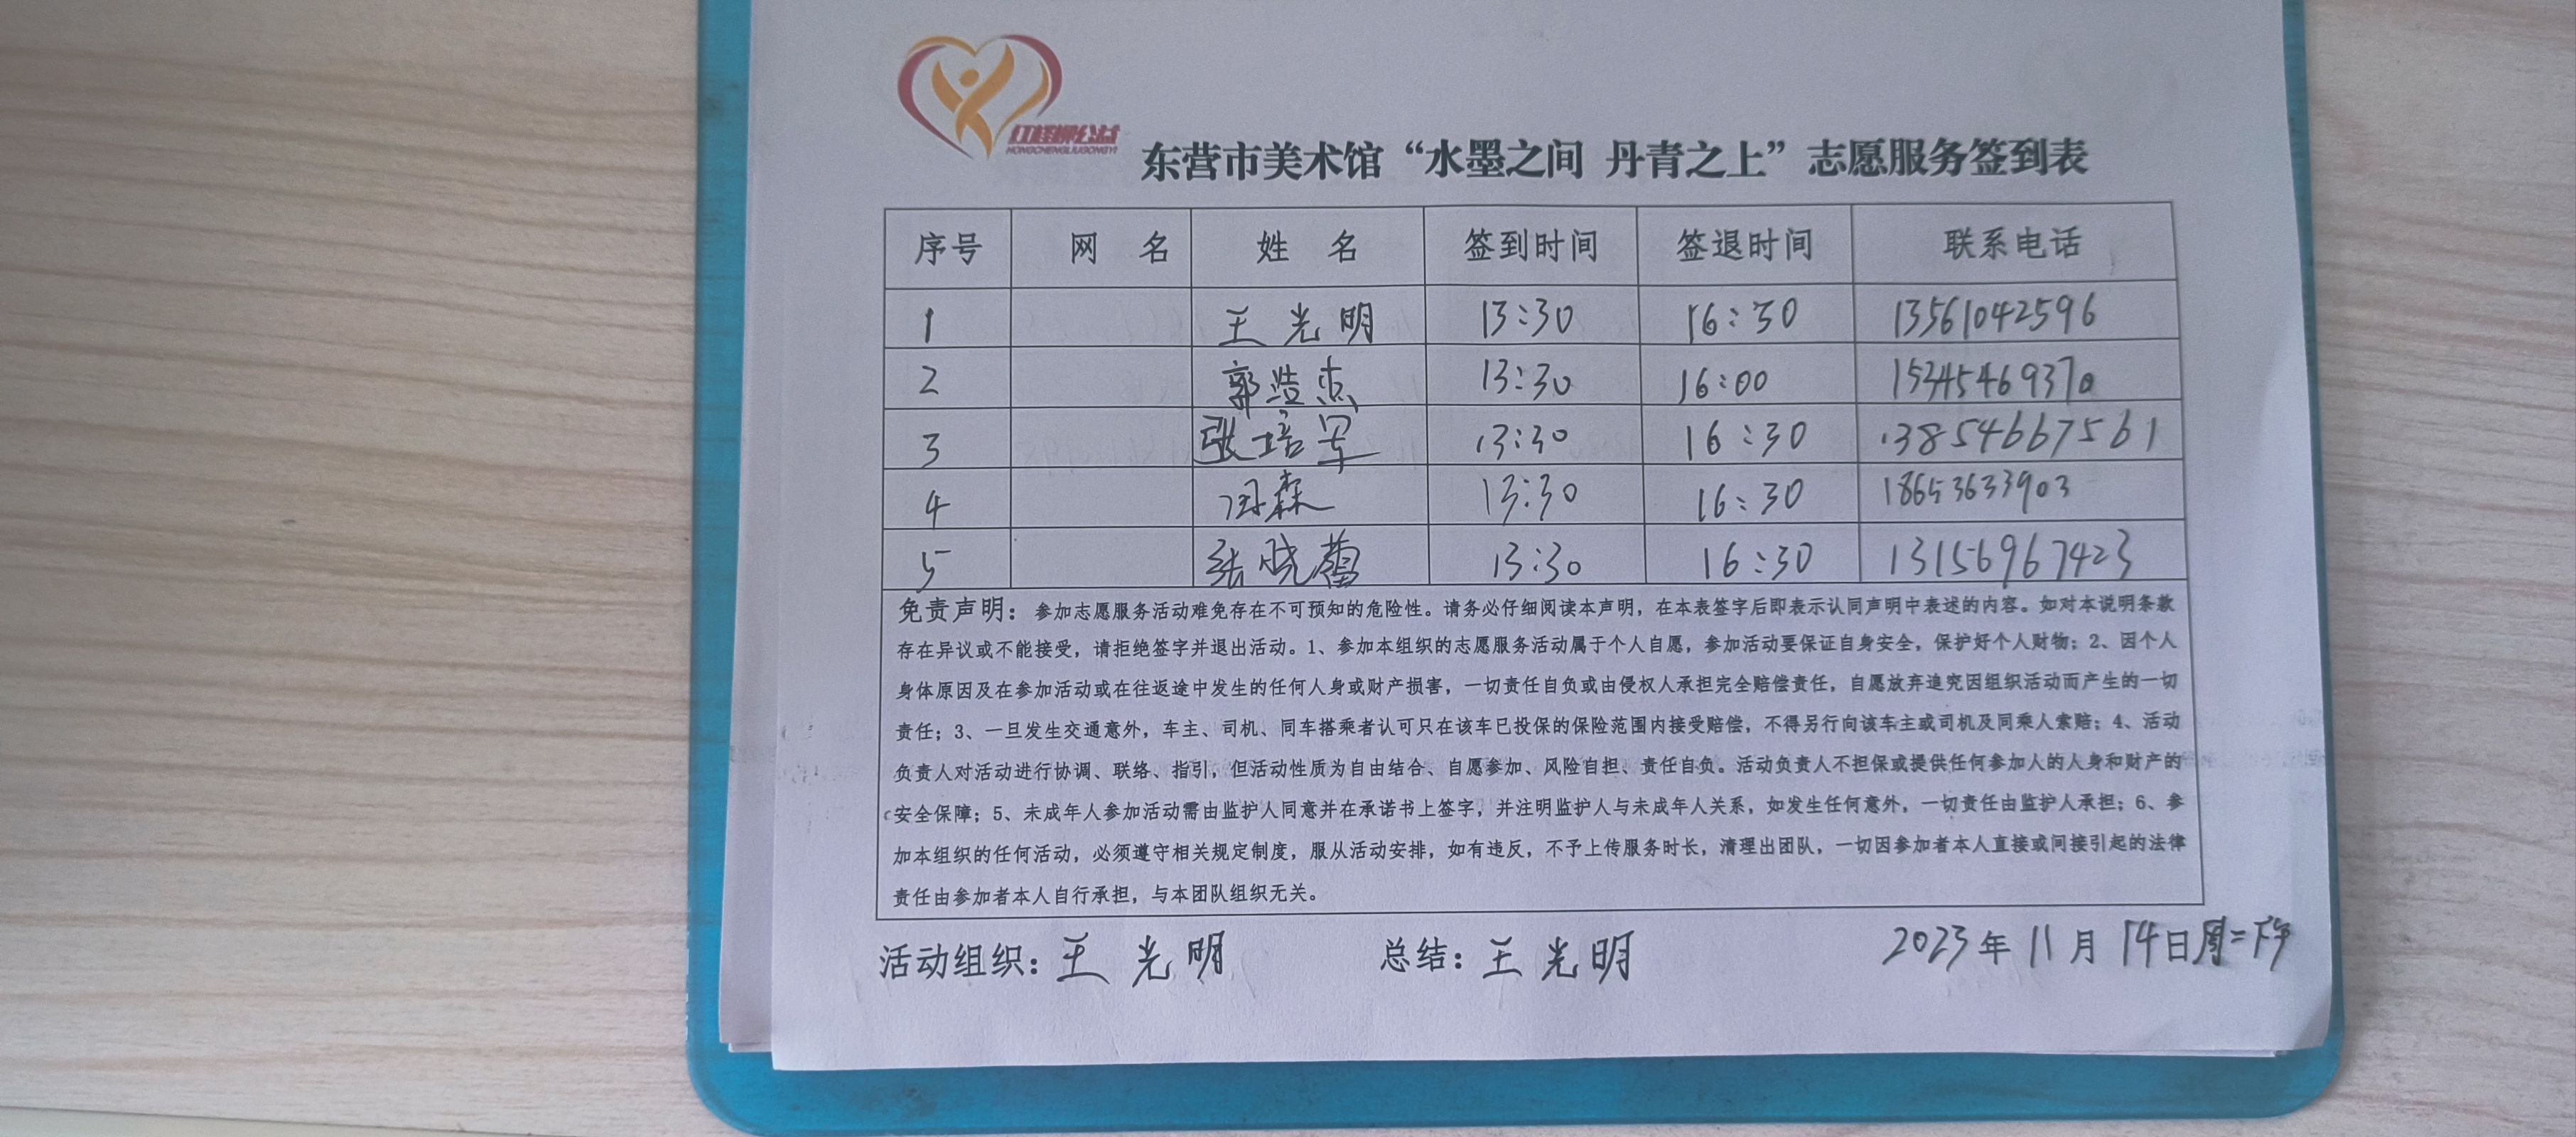 红柽柳公益
HONGCHENGLIUGONGYI
东营市美术馆“水墨之间 丹青之上”志愿服务签到表
序号 网 名 姓 名 签到时间 签退时间 联系电话
1 王光明 13:30 16:30 13561042596
2 郭浩杰 13:30 16:00 15345469370
3 张培军 13:30 16:30 13854667561
4 闫森 13:30 16:30 18653633903
5 张晓蕾 13:30 16:30 13156967423
免责声明：参加志愿服务活动难免存在不可预知的危险性。请务必仔细阅读本声明，在本表签字后即表示认同声明中表述的内容。如对本说明条款
存在异议或不能接受，请拒绝签字并退出活动。1、参加本组织的志愿服务活动属于个人自愿，参加活动要保证自身安全，保护好个人财物；2、因个人
身体原因及在参加活动或在往返途中发生的任何人身或财产损害，一切责任自负或由侵权人承担完全赔偿责任，自愿放弃追究因组织活动而产生的一切
责任；3、一旦发生交通意外，车主、司机、同车搭乘者认可只在该车已投保的保险范围内接受赔偿，不得另行向该车主或司机及同乘人索赔；4、活动
负责人对活动进行协调、联络、指引，但活动性质为自由结合、自愿参加、风险自担、责任自负。活动负责人不担保或提供任何参加人的人身和财产的
安全保障；5、未成年人参加活动需由监护人同意并在承诺书上签字，并注明监护人与未成年人关系，如发生任何意外，一切责任由监护人承担；6、参
加本组织的任何活动，必须遵守相关规定制度，服从活动安排，如有违反，不予上传服务时长，清理出团队，一切因参加者本人直接或间接引起的法律
责任由参加者本人自行承担，与本团队组织无关。
活动组织：王光明 总结：王光明 2023年11月14日周二下午